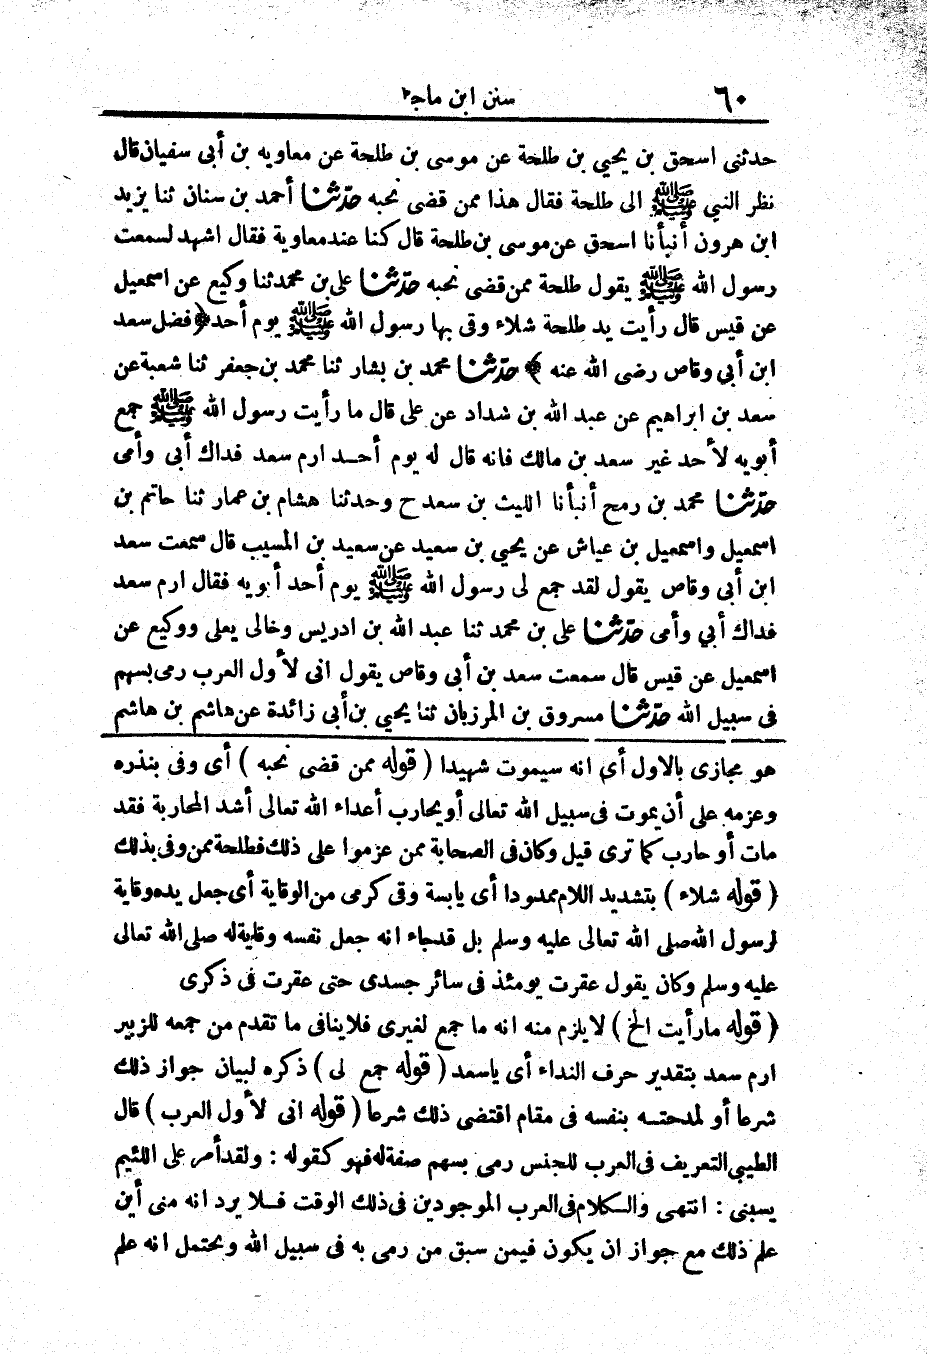 ٦٠
سنن ابن ماجه
حدثنى اسحق بن يحيي بن طلحة عن موسى بن طلحة عن معاويه بن أبى سفيان قال
نظر النبي ﷺ الى طلحة فقال هذا ممن قضى نحبه حدّثنا أحمد بن سنان ثنا يزيد
ابن هرون أنبأنا اسحق عن موسى بن طلحة قال كنا عند معاوية فقال اشهد لسمعت
رسول الله ﷺ يقول طلحة ممن قضى نحبه حدّثنا على بن محمد ثنا وكيع عن اسمعيل
عن قيس قال رأيت يد طلحة شلاء وقى بها رسول الله ﷺ يوم أحد ﴿ فضل سعد
ابن أبي وقاص رضى الله عنه ﴾ حدّثنا محمد بن بشار ثنا محمد بن جعفر ثنا شعبة عن
سعد بن ابراهيم عن عبد الله بن شداد عن على قال ما رأيت رسول الله ﷺ جمع
أبويه لأحد غير سعد بن مالك فانه قال له يوم أحد ارم سعد فداك أبى وأمى
حدّثنا محمد بن رمح أنبأنا الليث بن سعد ح وحدثنا هشام بن عمار ثنا حاتم بن
اسمعيل واسمعيل بن عياش عن يحيي بن سعيد عن سعيد بن المسيب قال سمعت سعد
ابن أبى وقاص يقول لقد جمع لى رسول الله ﷺ يوم أحد أبويه فقال ارم سعد
فداك أبي وأمى حدّثنا على بن محمد ثنا عبد الله بن ادريس وخالى يعلى ووكيع عن
اسمعيل عن قيس قال سمعت سعد بن أبى وقاص يقول انى لأول العرب رمى بسهم
فى سبيل الله حدّثنا مسروق بن المرزبان ثنا يحيي بن أبى زائدة عن هاشم بن هاشم
هو مجازى بالاول أى انه سيموت شهيدا ( قوله ممن قضى نحبه ) أى وفى بنذره
وعزمه على أن يموت فى سبيل الله تعالى أو يحارب أعداء الله تعالى أشد المحاربة فقد
مات أو حارب كما ترى قيل وكان فى الصحابة ممن عزموا على ذلك فطلحة ممن وفى بذلك
( قوله شلاء ) بتشديد اللام ممدودا أى يابسة وقى كرمى من الوقاية أى جعل يده وقاية
لرسول الله صلى الله تعالى عليه وسلم بل قد جاء انه جعل نفسه وقاية له صلى الله تعالى
عليه وسلم وكان يقول عقرت يومئذ فى سائر جسدى حتى عقرت فى ذكرى
( قوله ما رأيت الخ ) لا يلزم منه انه ما جمع لغيرى فلا ينافى ما تقدم من جمعه للزبير
ارم سعد بتقدير حرف النداء أى ياسعد ( قوله جمع لى ) ذكره لبيان جواز ذلك
شرعا أو لمدحته بنفسه فى مقام اقتضى ذلك شرعا ( قوله انى لأول العرب ) قال
الطيبي التعريف فى العرب للجنس رمى بسهم صفة له فهو كقوله : ولقد أمر على اللئيم
يسبنى : انتهى والكلام فى العرب الموجودين فى ذلك الوقت فلا يرد انه منى أين
علم ذلك مع جواز ان يكون فيمن سبق من رمى به فى سبيل الله ويحتمل انه علم